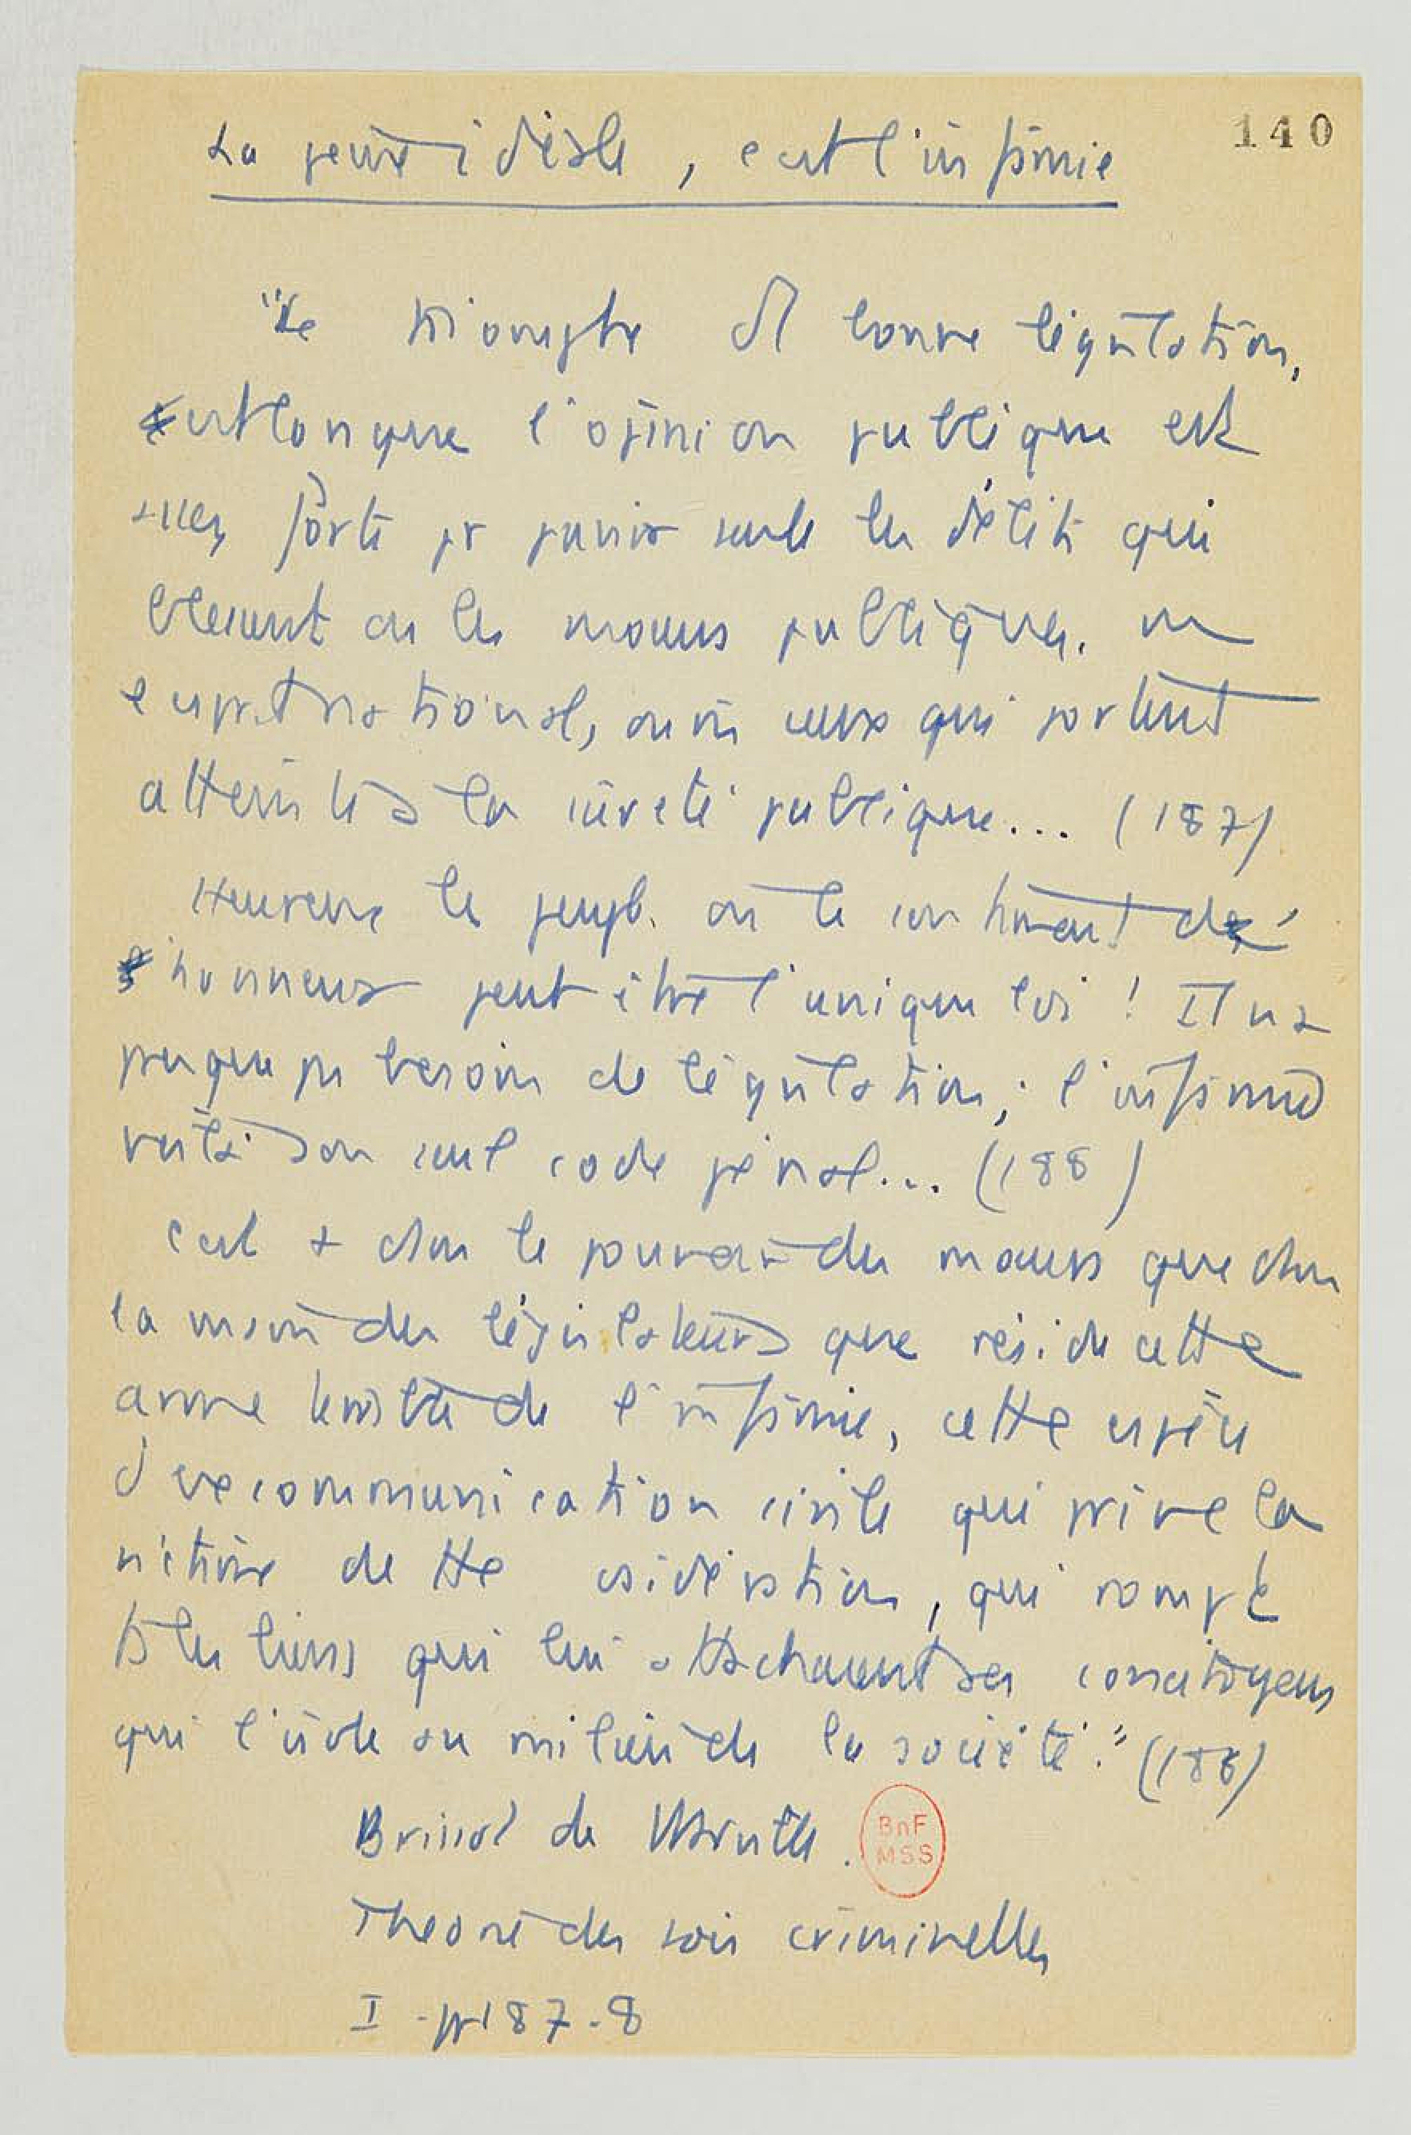 140
La peine idéale, c'est l'infamie
"Le triomphe d'1 bonne législation,
c'est lorsque l'opinion publique est
assez forte pr punir seule les délits qui
blessent ou les mœurs publiques, ou
l'esprit national, ou ceux qui portent
atteinte à la sûreté publique... (187)
Heureux le peupl. où le sentiment de
l'honneur peut être l'unique loi ! Il n'a
presque pas besoin de législation ; l'infamie
voilà son seul code pénal... (188)
C'est + dans le pouvoir des mœurs que dans
la main des législateurs que réside cette
arme terrible de l'infamie, cette espèce
d'excommunication civile qui prive la
victime de tte csidération, qui rompt
ts les liens qui lui attachaient ses concitoyens
qui l'isole au milieu de la société." (188)
Brissot de Warville.
BnF
MSS
Théorie des lois criminelles
I - pp 187-8